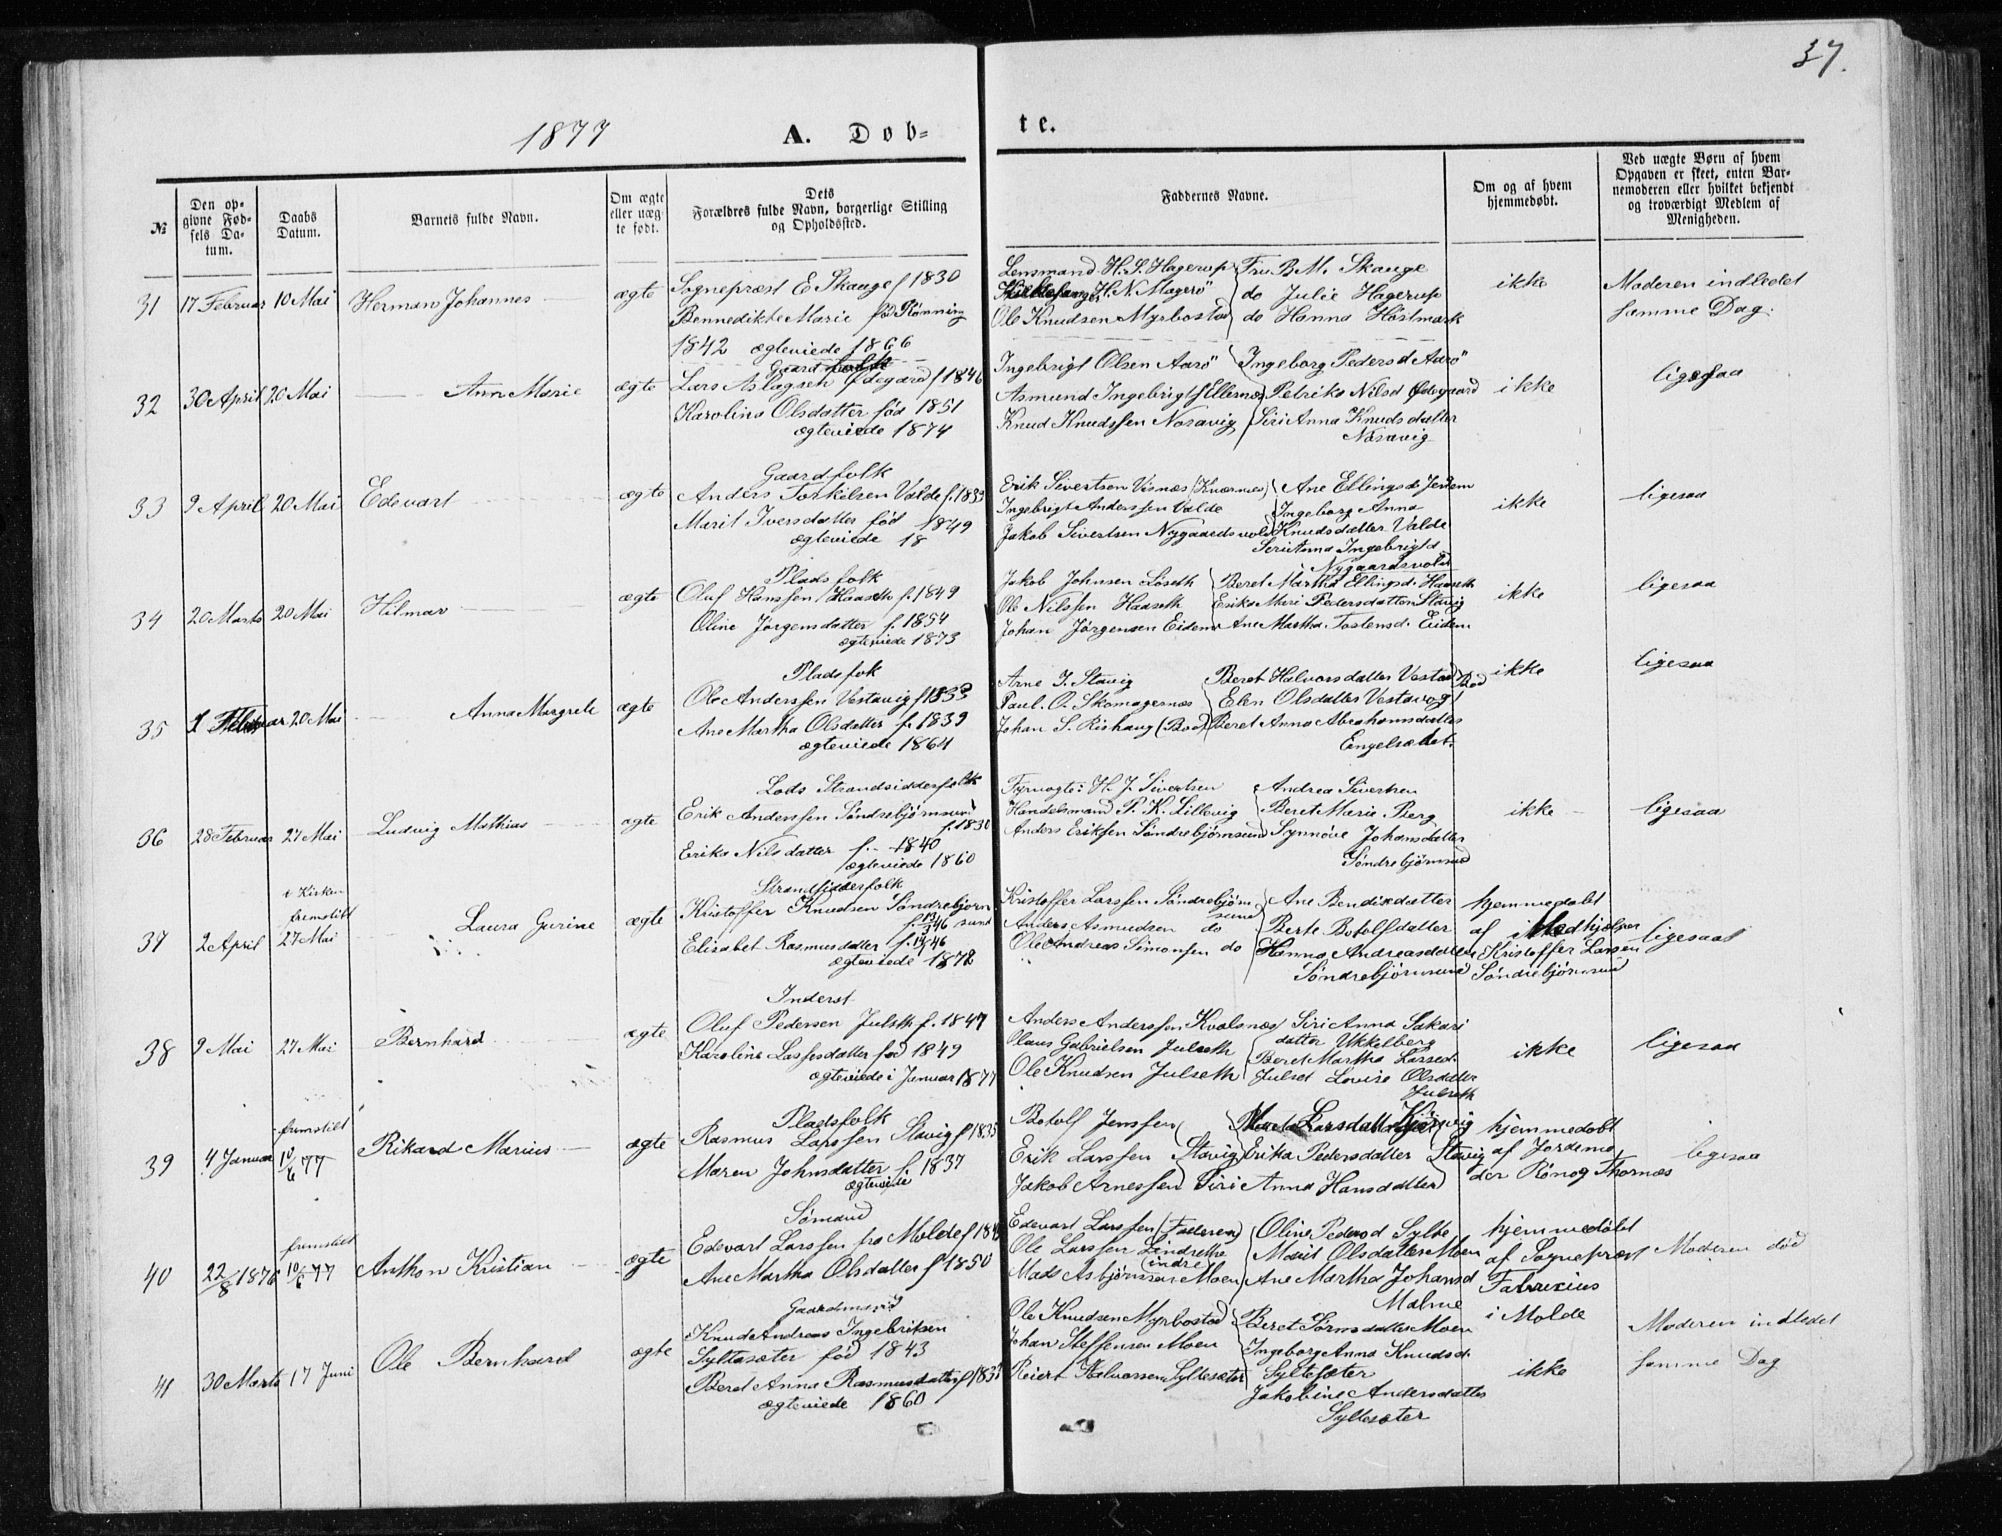 37.
1877 A. Dob- te.
№
Den op-
givne Fød-
sels Da-
tum.
Daabs
Datum.
Barnets fulde Navn.
Om ægte
eller uæg-
te født.
Dets
Forældres fulde Navn, borgerlige Stilling
og Opholdssted.
Faddernes Navne.
Om og af hvem
hjemmedøbt.
Ved uægte Børn af hvem
Opgaven er skeet, enten Bar-
nemoderen eller hvilket bekjendt
og troværdigt Medlem af
Menigheden.
31 17 Februar 10 Mai Herman Johannes ægte
Sogneprest E Skauge f 1830
Bennedikte Marie fød Rønning
1842 ægteviede 1866
Lensmand H. S. Hagerup Fru B M. Skauge
H. N. Magerö do Julie Hagerup
Ole Knudsen Myrbostad do Hanna Höstmark
ikke
Moderen indledet
samme Dag.
32 30 April 20 Mai Ann Marie ægte
Gaardfolk
Lars Aslagsen Ødegaard f 1846
Karolina Olsdatter fød 1851
ægteviede 1874
Ingebrigt Olsen Aarö Ingeborg Pedersd Aarö
Asmund Ingebrigt Ellernes Petrika Nilsd Ødegaard
Knud Knudssen Nosavig Siri Anna Knudsdatter
Nosavig
ikke
ligesaa
33 9 April 20 Mai Edevart ægte
Gaardfolk
Anders Torkilsen Valde f. 1833
Marit Iversdatter fød 1849
ægteviede 18
Erik Sivertsen Visnæs (Kværnes) Ane Ellingsd Jendem
Ingebrigt Anderssen Valde Ingeborg Anna
Jakob Sivertsen Nygaardsvold Knudsdatter Valde
Seri Anna Ingebrigtd
Nygaardsvold
ikke
ligesaa
34 20 Marts 20 Mai Hilmar ægte
Pladsfolk
Oluf Hanssen Haaseth f. 1849
Oline Jørgensdatter f. 1854
ægteviede 1873
Jakob Johnsen Löseth Beret Martha Ellingsd. Haaseth
Ole Nilssen Haaseth Erika Mari Pedersdatter Stavig
Johan Jörgensen Eidem Ane Martha Tostensd. Eidem
ikke
ligesaa
35 1 Februar 20 Mai Anna Margrete ægte
Pladsfok
Ole Anderssen Vestavig f 1833
Ane Martha Olsdatter f. 1839
ægteviede 1864
Arne J. Stavig Beret Halvorsdatter Vestad Bod
Paul. O. Skomagernæs Elen Olsdatter Vestavig
Johan S. Rishaug (Bod) Beret Anna Abrahamsdatter
Engelsætet.
ikke
ligesaa
36 28 Februar 27 Mai Ludvig Mathias ægte
Lods Strandsidderfolk
Erik Andersen Søndrebjørnsund
f. 1830
Erika Nilsdatter f. 1840
ægteviede 1860
Fyrvogter H. J. Sivertsen Andrea Sivertsen
Handelsmand P. K. Lillevig Beret Marie Berg
Anders Eriksen Søndrebjørnsund Synnöve Johansdatter
Søndrebjørnsund
ikke
ligesaa
37 2 April
i Kirken
fremstilt
27 Mai
Laura Gurine ægte
Strandsidderfolk
Kristoffer Knudsen Søndrebjørn
sund
Elisabet Rasmusdatter
ægteviede 1872
Kristoffer Larssen Søndrebjørn Ane Bendiksdatter
sund
Anders Asmudsen do Berte Botolfdatter
Ole Andreas Simonsen do Hanna Andreasdatter
Søndrebjørnsund
hjemmedøbt
af Medhjælper
Kristoffer Larsen
Søndrebjørnsund
ligesaa
38 9 Mai 27 Mai Bernhard ægte
Inderst
Oluf Pedersen Julseth f. 1847
Karoline Lassesdatter fød 1849
ægteviede i Januar 1877
Anders Anderssen Kvalsnæs Siri Anna Sakari
datter Ukkelberg
Claus Gabrielsen Julseth Beret Martha Larsed.
Ole Knudsen Julseth Julset Lovise Olsdatter
Julseth
ikke
ligesaa
39 4 Januar
fremstilt
10/6 77
Rikard Marius ægte
Pladsfolk
Rasmus Larssen Stavig f 1835
Maren Johnsdatter f. 1837
ægteviede
Botolf Jenssen Larsdatter
Erik Larssen Stavig Erika Pedersdatter Stavig
Jakob Arnessen Siri Anna Hansdatter
hjemmedøbt
af Jordemo
der Rønog Thornæs
ligesaa
40 22/8 1876
fremstilt
10/6 77
Anthon Kristian ægte
Sømand
Edevart Larssen fra Molde f 184
Ane Martha Olsdatter f 1850
Edevart Larssen (Faderen) Oline Pedersd Sylte
Ole Larssen Lindsethe Marit Olsdatter Moen
indre
Mads Asbjørnssen Moen Ane Martha Johansd
Malme
hjemmedøbt
af Sogneprest
Fabricius
i Molde
Moderen död
41 30 Marts 17 Juni Ole Bernhard ægte
Gaardmand
Knud Andreas Ingebriksen
Syltesæter fød 1843
Beret Anna Rasmusdatter f 1833
ægteviede 1860
Ole Knudsen Myrbostad Beret Sørensdatter Moen
Johan Steffensen Moen Ingeborg Anna Knudsd.
Reiert Halvorssen Syltesæter Syltesæter
Jakobine Andersdatter
Syltesæter
ikke
Moderen indledet
samme Dag